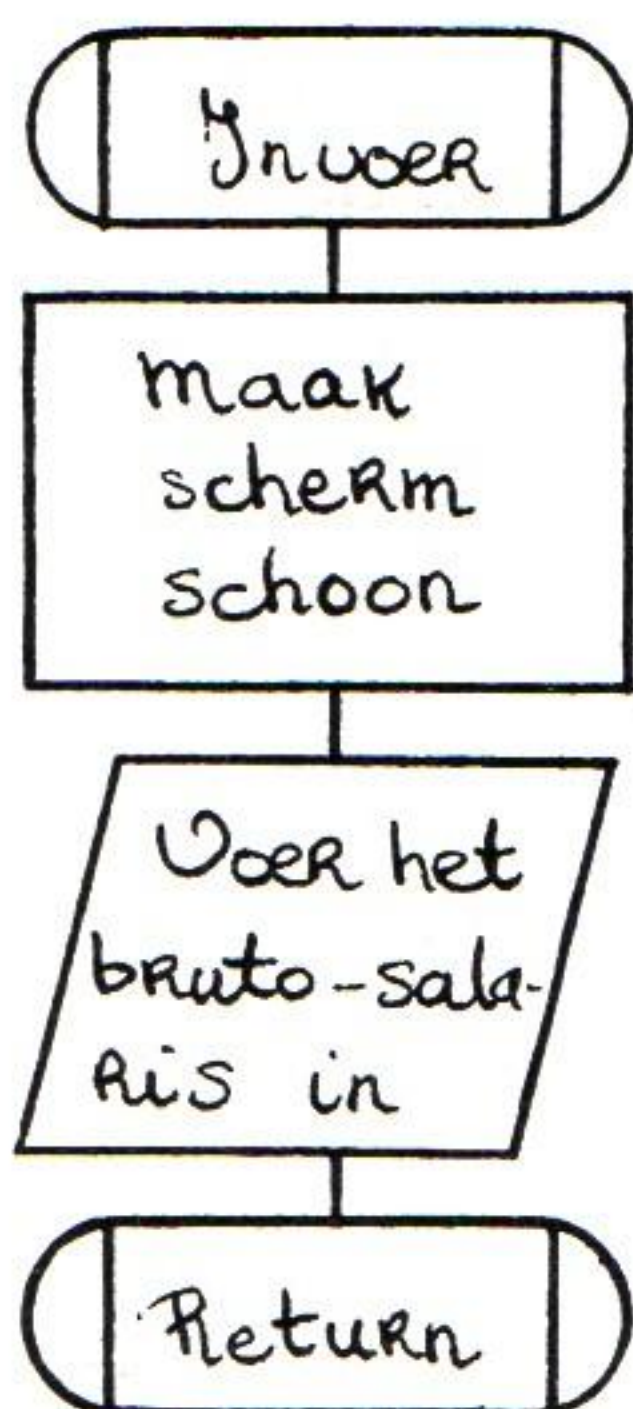 Invoer
maak
scherm
schoon
Voer het
bruto-sala-
ris in
Return